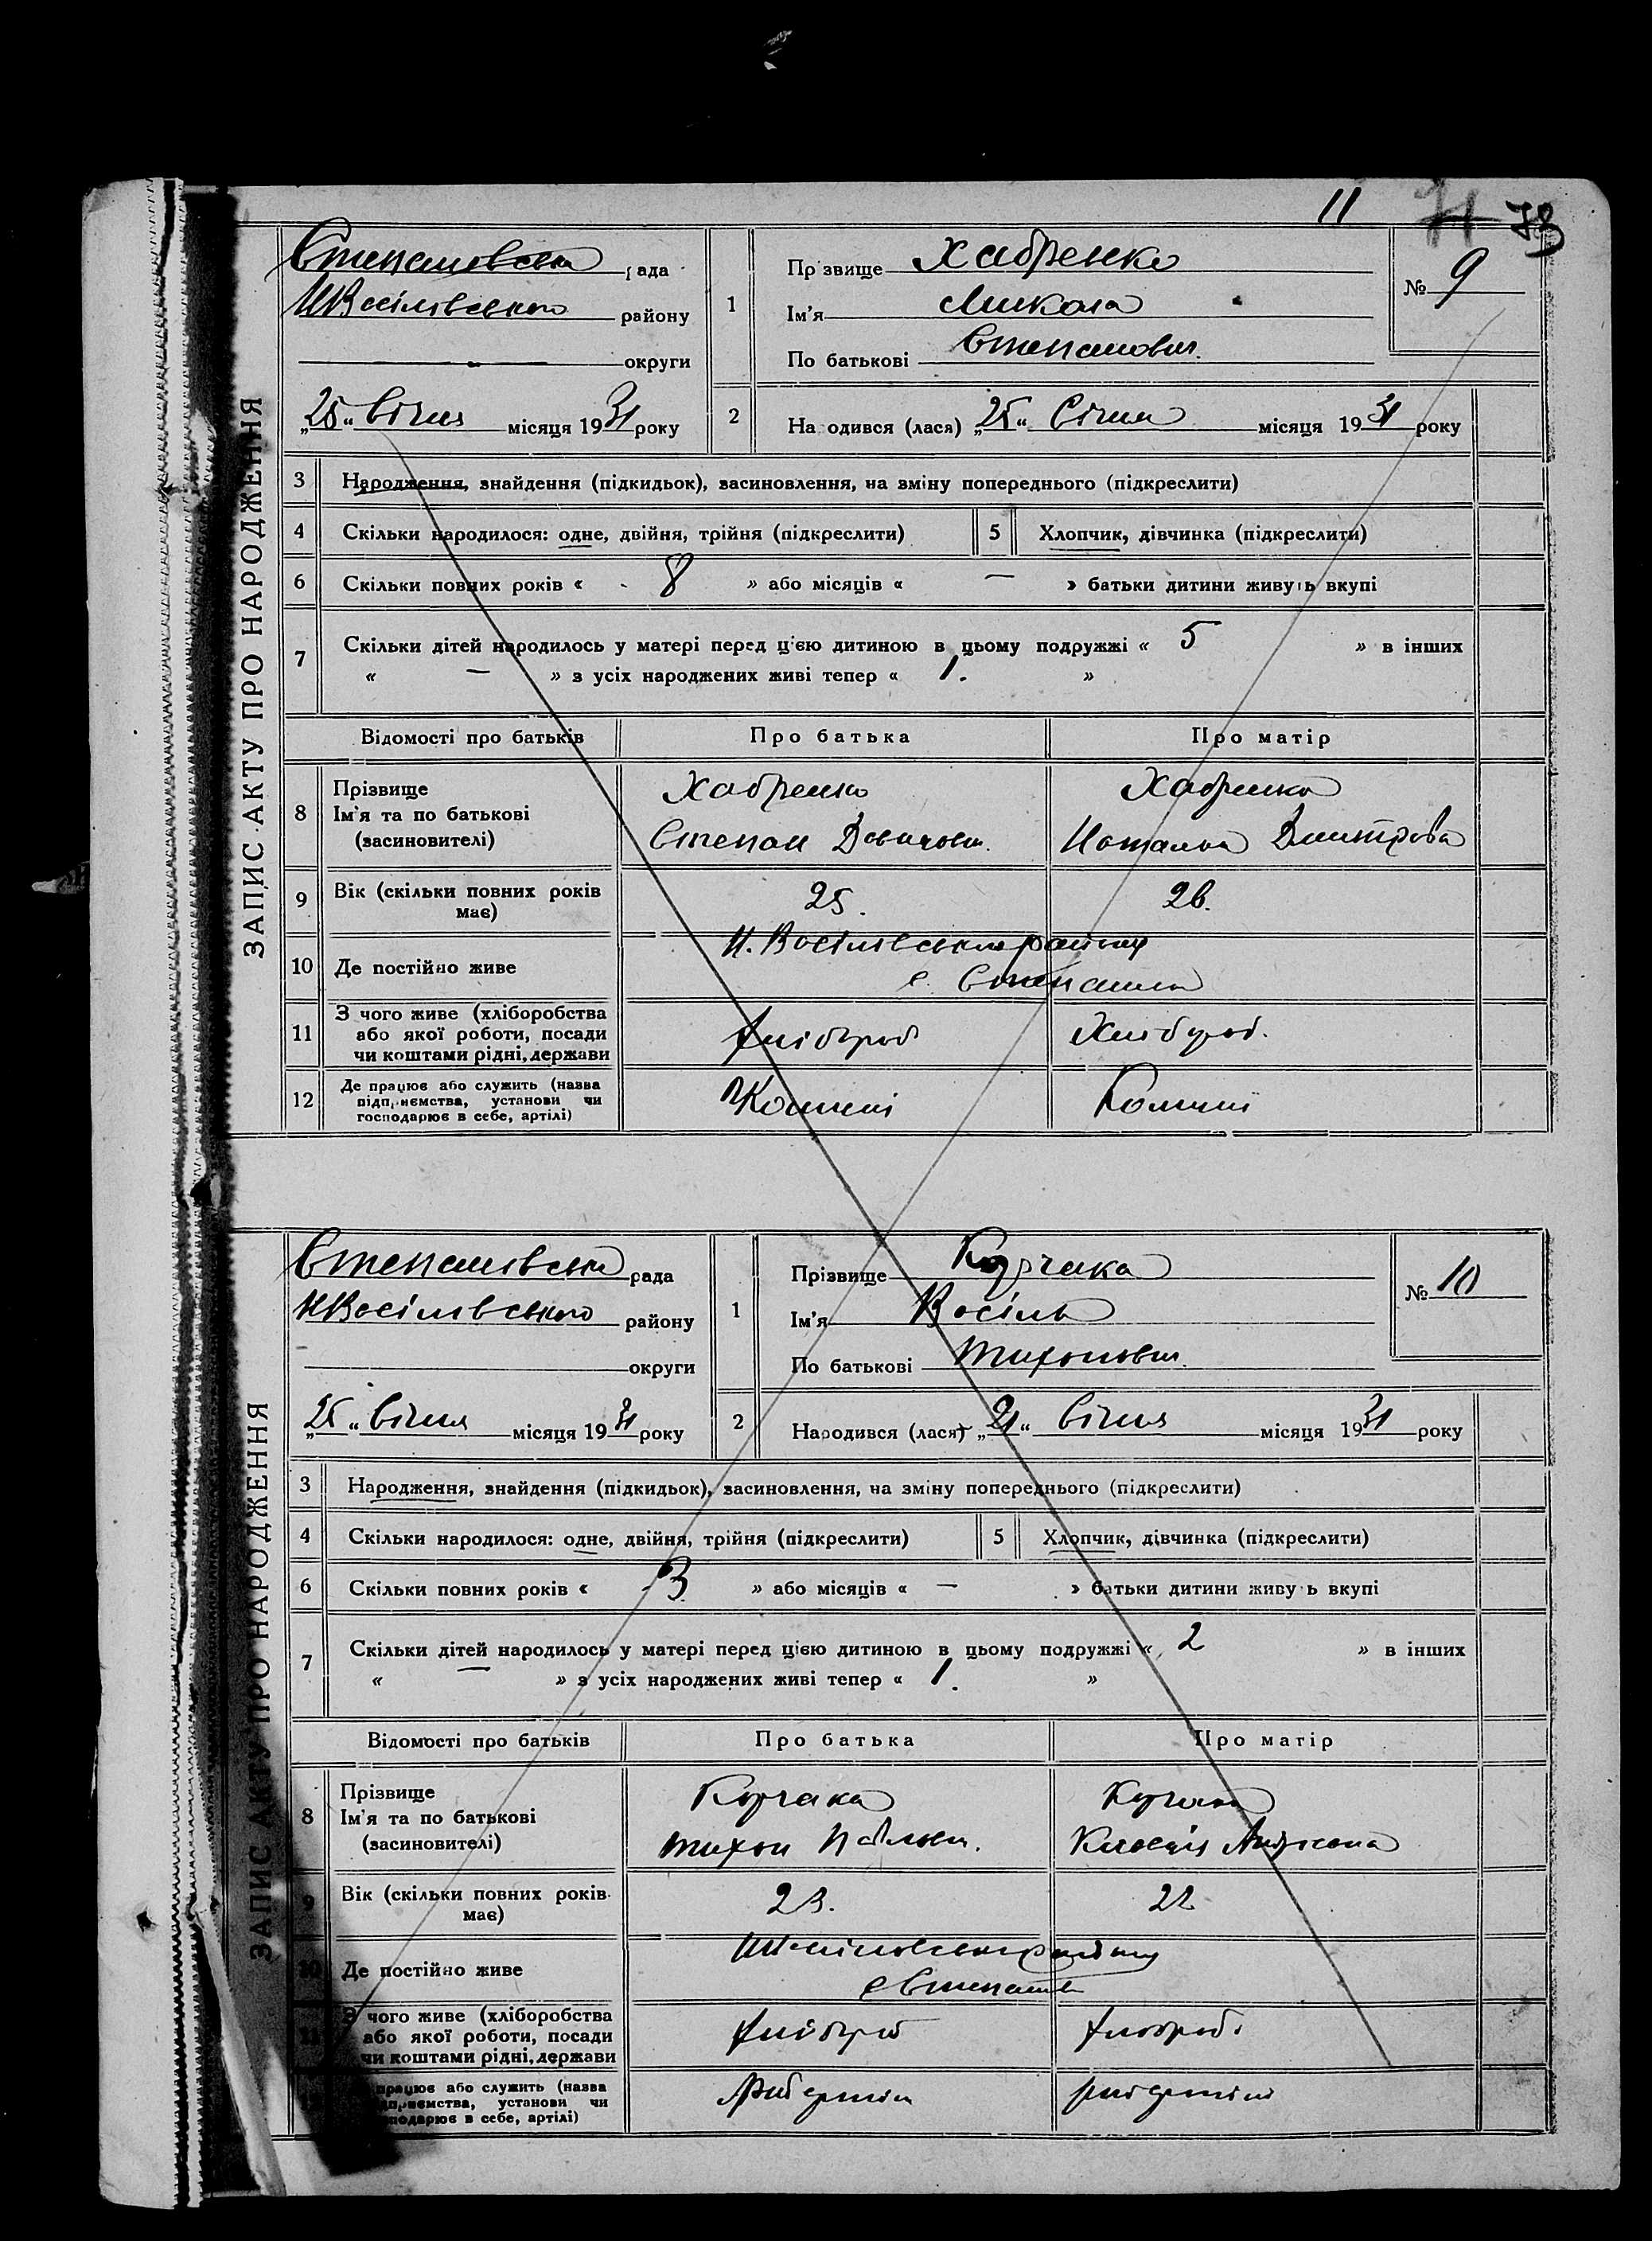 11 71 73
ЗАПИС АКТУ ПРО НАРОДЖЕННЯ
Степанівська рада
НВасілівського району
округи
„25“ Січня місяця 1931 року
1
Прізвище Хабренко
Ім'я Микола
По батькові Степанович.
№ 9
2 На одився (лася) „25“ Січня місяця 1931 року
3 Народження, знайдення (підкидьок), засиновлення, на зміну попереднього (підкреслити)
4 Скільки народилося: одне, двійня, трійня (підкреслити) 5 Хлопчик, дівчинка (підкреслити)
6 Скільки повних років « - 8 » або місяців « — » батьки дитини живуть вкупі
7 Скільки дітей народилось у матері перед цією дитиною в цьому подружжі « 5 » в інших
« — » з усіх народжених живі тепер « 1. »
Відомості про батьків Про батька Про матір
8 Прізвище Хабренко Хабренко
Ім'я та по батькові
(засиновителі) Степан Наталка Дмитрова
9 Вік (скільки повних років має) 25. 26.
10 Де постійно живе Н. Васілівського району
с. Степанівка
11 З чого живе (хліборобства
або якої роботи, посади
чи коштами рідні, держави Хлібороб Хлібороб.
12 Де працює або служить (назва
підприємства, установи чи
господарює в себе, артілі) Комуні Комуні
ЗАПИС АКТУ ПРО НАРОДЖЕННЯ
Степанівська рада
НВасілівського району
округи
„25“ Січня місяця 1931 року
1
Прізвище Корчака
Ім'я Васіль
По батькові Тихонович.
№ 10
2 Народився (лася) „21“ Січня місяця 1931 року
3 Народження, знайдення (підкидьок), засиновлення, на зміну попереднього (підкреслити)
4 Скільки народилося: одне, двійня, трійня (підкреслити) 5 Хлопчик, дівчинка (підкреслити)
6 Скільки повних років « - 3 » або місяців « — » батьки дитини живуть вкупі
7 Скільки дітей народилось у матері перед цією дитиною в цьому подружжі « 2 » в інших
« — » з усіх народжених живі тепер « 1. »
Відомості про батьків Про батька Про матір
8 Прізвище Корчака Корчака
Ім'я та по батькові
(засиновителі) Тихон Андріевна
9 Вік (скільки повних років має) 23. 22
10 Де постійно живе району
с Степанівка
11 З чого живе (хліборобства
або якої роботи, посади
чи коштами рідні, держави Хлібороб Хлібороб.
працює або служить (назва
підприємства, установи чи
господарює в себе, артілі)